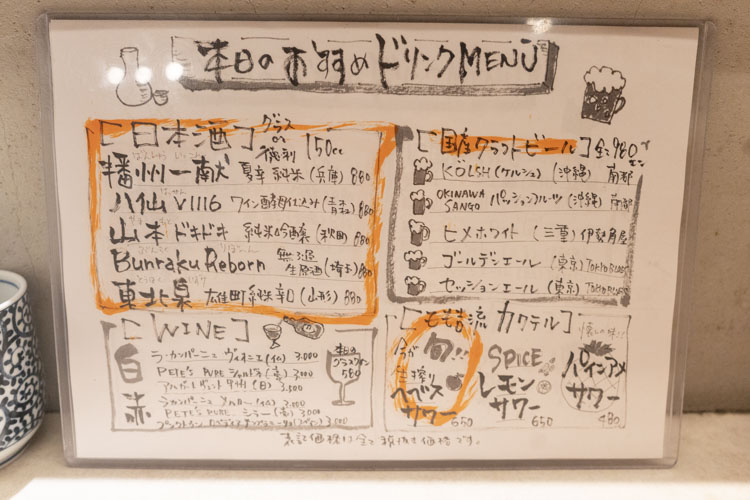 本日のおすすめドリンクMENU
[日本酒] グラス or 徳利 150cc
播州一献 夏辛 純米 (兵庫) 880
八仙 V1116 ワイン酵母仕込み (青森) 880
山本 ドキドキ 純米吟醸 (秋田) 880
Bunraku Reborn 無濾過 生原酒 (埼玉) 880
東北泉 雄町純米辛口 (山形) 890
[国産クラフトビール] 全て980
KÖLSH (ケルシュ) (沖縄) 南都
OKINAWA SANGO パッションフルーツ (沖縄) 南都
ヒメホワイト (三重) 伊勢角屋
ゴールデンエール (東京) TOKYO BLUES
セッションエール (東京) TOKYO BLUES
[WINE]
白
ラ・カンパーニュ ヴィオニエ (仏) 3,000
PETE'S PURE シャルドネ (豪) 3,000
甲州 (日) 3,500
赤
ラ・カンパーニュ メルロー (仏) 3,000
PETE'S PURE シラー (豪) 3,000
3,000
本日の
グラスワイン
580
流カクテル]
今が旬!!
生搾り
ヘベス
サワー
650
SPICE
レモン
サワー
650
懐しの味!!
パインアメ
サワー
480
表記価格は全て税抜き価格です。